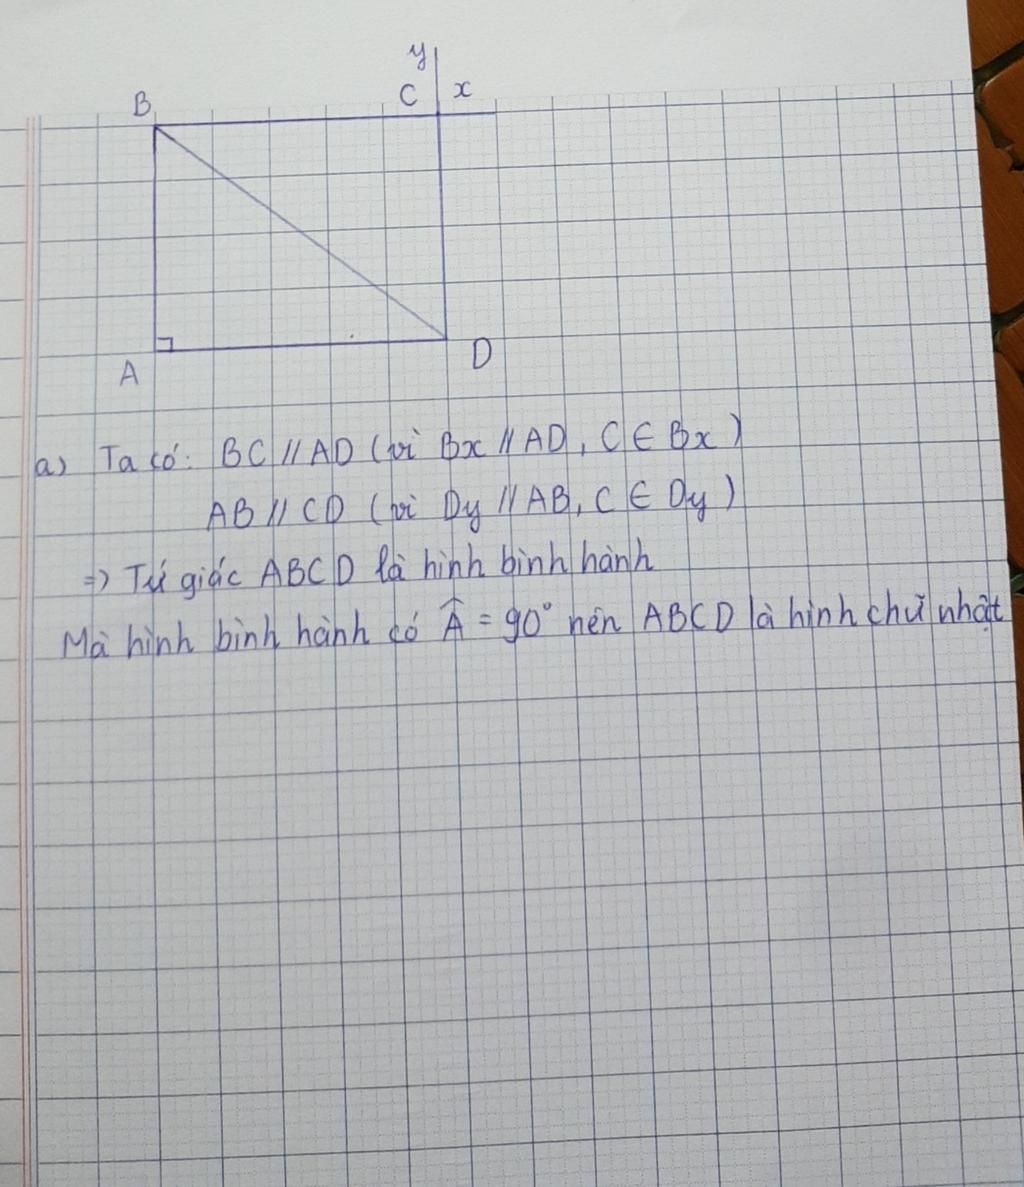 y
B C x
A D
a) Ta có: BC // AD (vì Bx // AD, C ∈ Bx)
AB // CD (vì Dy // AB, C ∈ Dy)
=> Tứ giác ABCD là hình bình hành
Mà hình bình hành có Â = 90° nên ABCD là hình chữ nhật